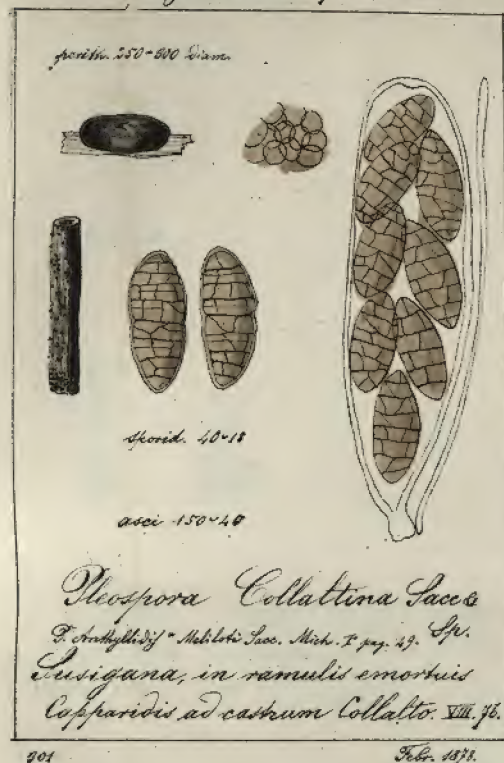 perith. 250-300 diam.
sporid. 40-18
asci 150-40
Pleospora Collaltina Sacc &
Meliloti Sacc. Mich. I. pag. 29. Sp.
Susigana, in ramulis emortuis
Capparidis ad castrum Collalto. VIII. 76.
301 Febr. 1878.